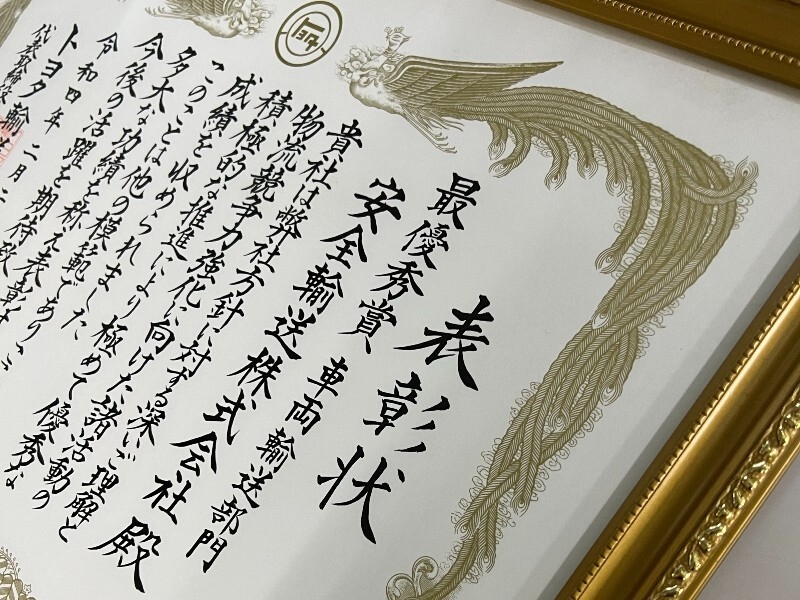 トヨタ
表彰状
最優秀賞 車両輸送部門
安全輸送株式会社 殿
貴社は弊社方針に対する深いご理解と
物流競争力強化に向けた諸活動の
積極的な推進により極めて優秀な
成績を収められました
このことは他の模範であり
多大な功績を称え表彰
今後の活躍を期待致
令和四年二月
トヨタ輸
代表取締役